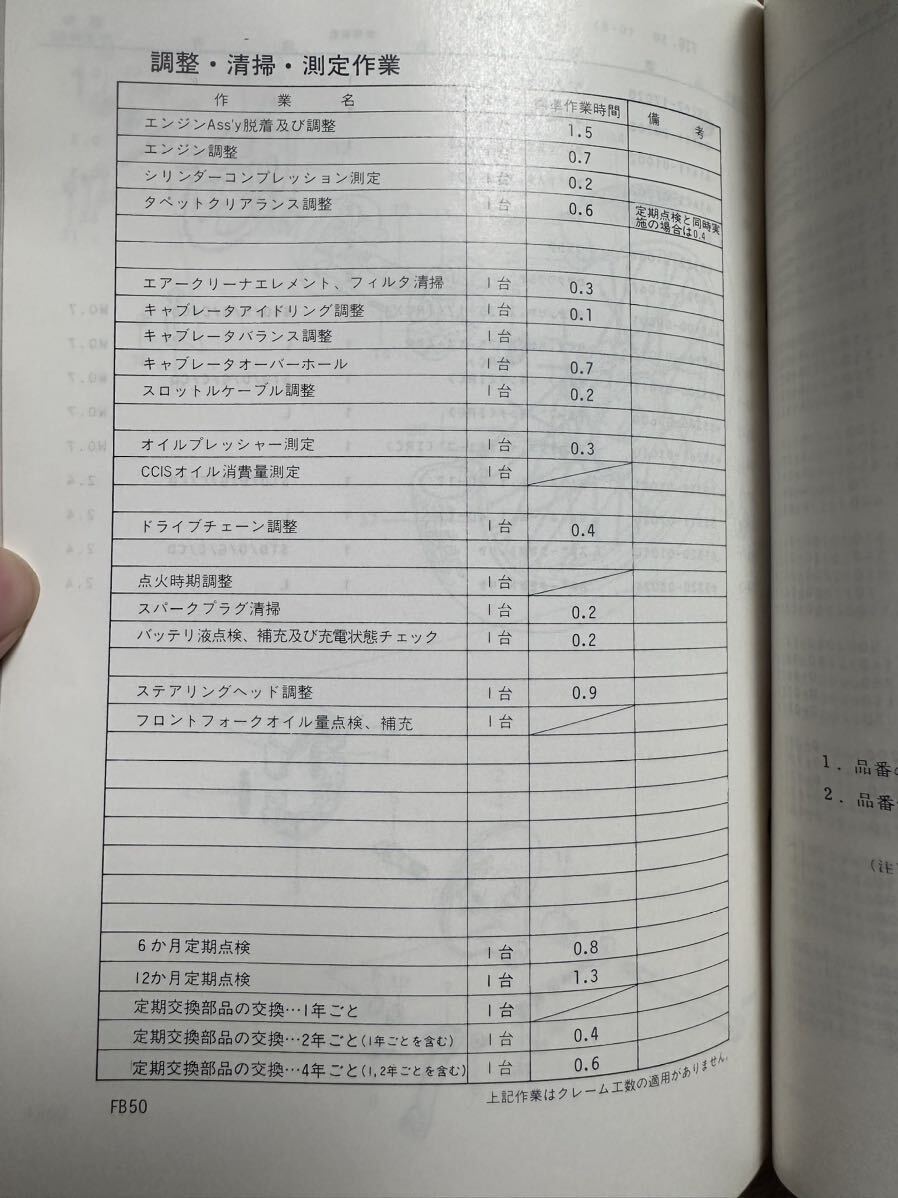 調整・清掃・測定作業
作業名 準作業時間 備考
エンジンAss'y脱着及び調整 1.5
エンジン調整 0.7
シリンダーコンプレッション測定 1台 0.2
タペットクリアランス調整 1台 0.6 定期点検と同時実
施の場合は0.4
エアークリーナエレメント、フィルタ清掃 1台 0.3
キャブレータアイドリング調整 1台 0.1
キャブレータバランス調整 1台
キャブレータオーバーホール 1台 0.7
スロットルケーブル調整 1台 0.2
オイルプレッシャー測定 1台 0.3
CCISオイル消費量測定 1台
ドライブチェーン調整 1台 0.4
点火時期調整 1台
スパークプラグ清掃 1台 0.2
バッテリ液点検、補充及び充電状態チェック 1台 0.2
ステアリングヘッド調整 1台 0.9
フロントフォークオイル量点検、補充 1台
6か月定期点検 1台 0.8
12か月定期点検 1台 1.3
定期交換部品の交換…1年ごと 1台
定期交換部品の交換…2年ごと(1年ごとを含む) 1台 0.4
定期交換部品の交換…4年ごと(1,2年ごとを含む) 1台 0.6
上記作業はクレーム工数の適用がありません.
FB50
1. 品番の
2. 品番
(注